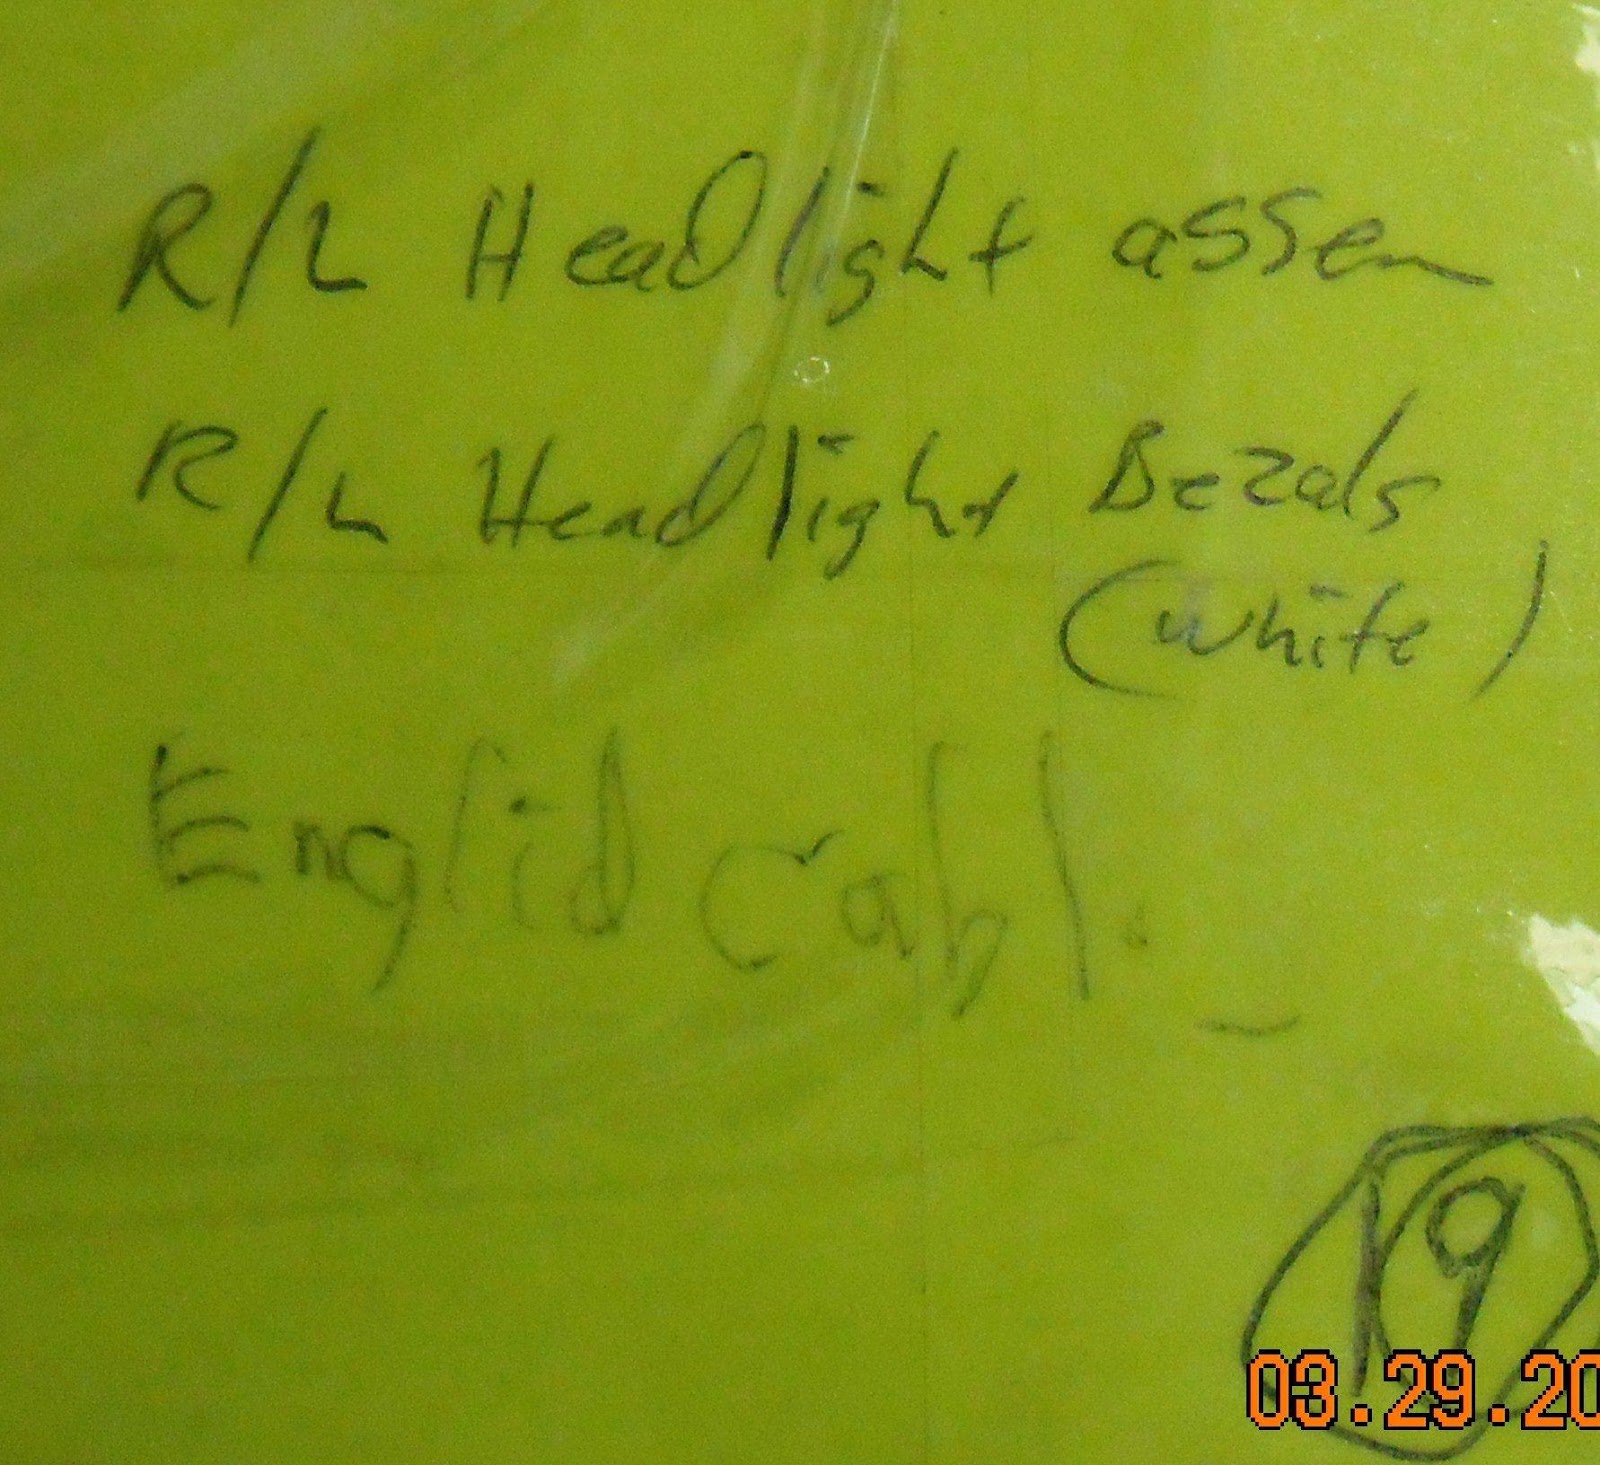 R/L Headlight assem
R/L Headlight Bezals
(white)
Englid Cabl.
19
03.29.20